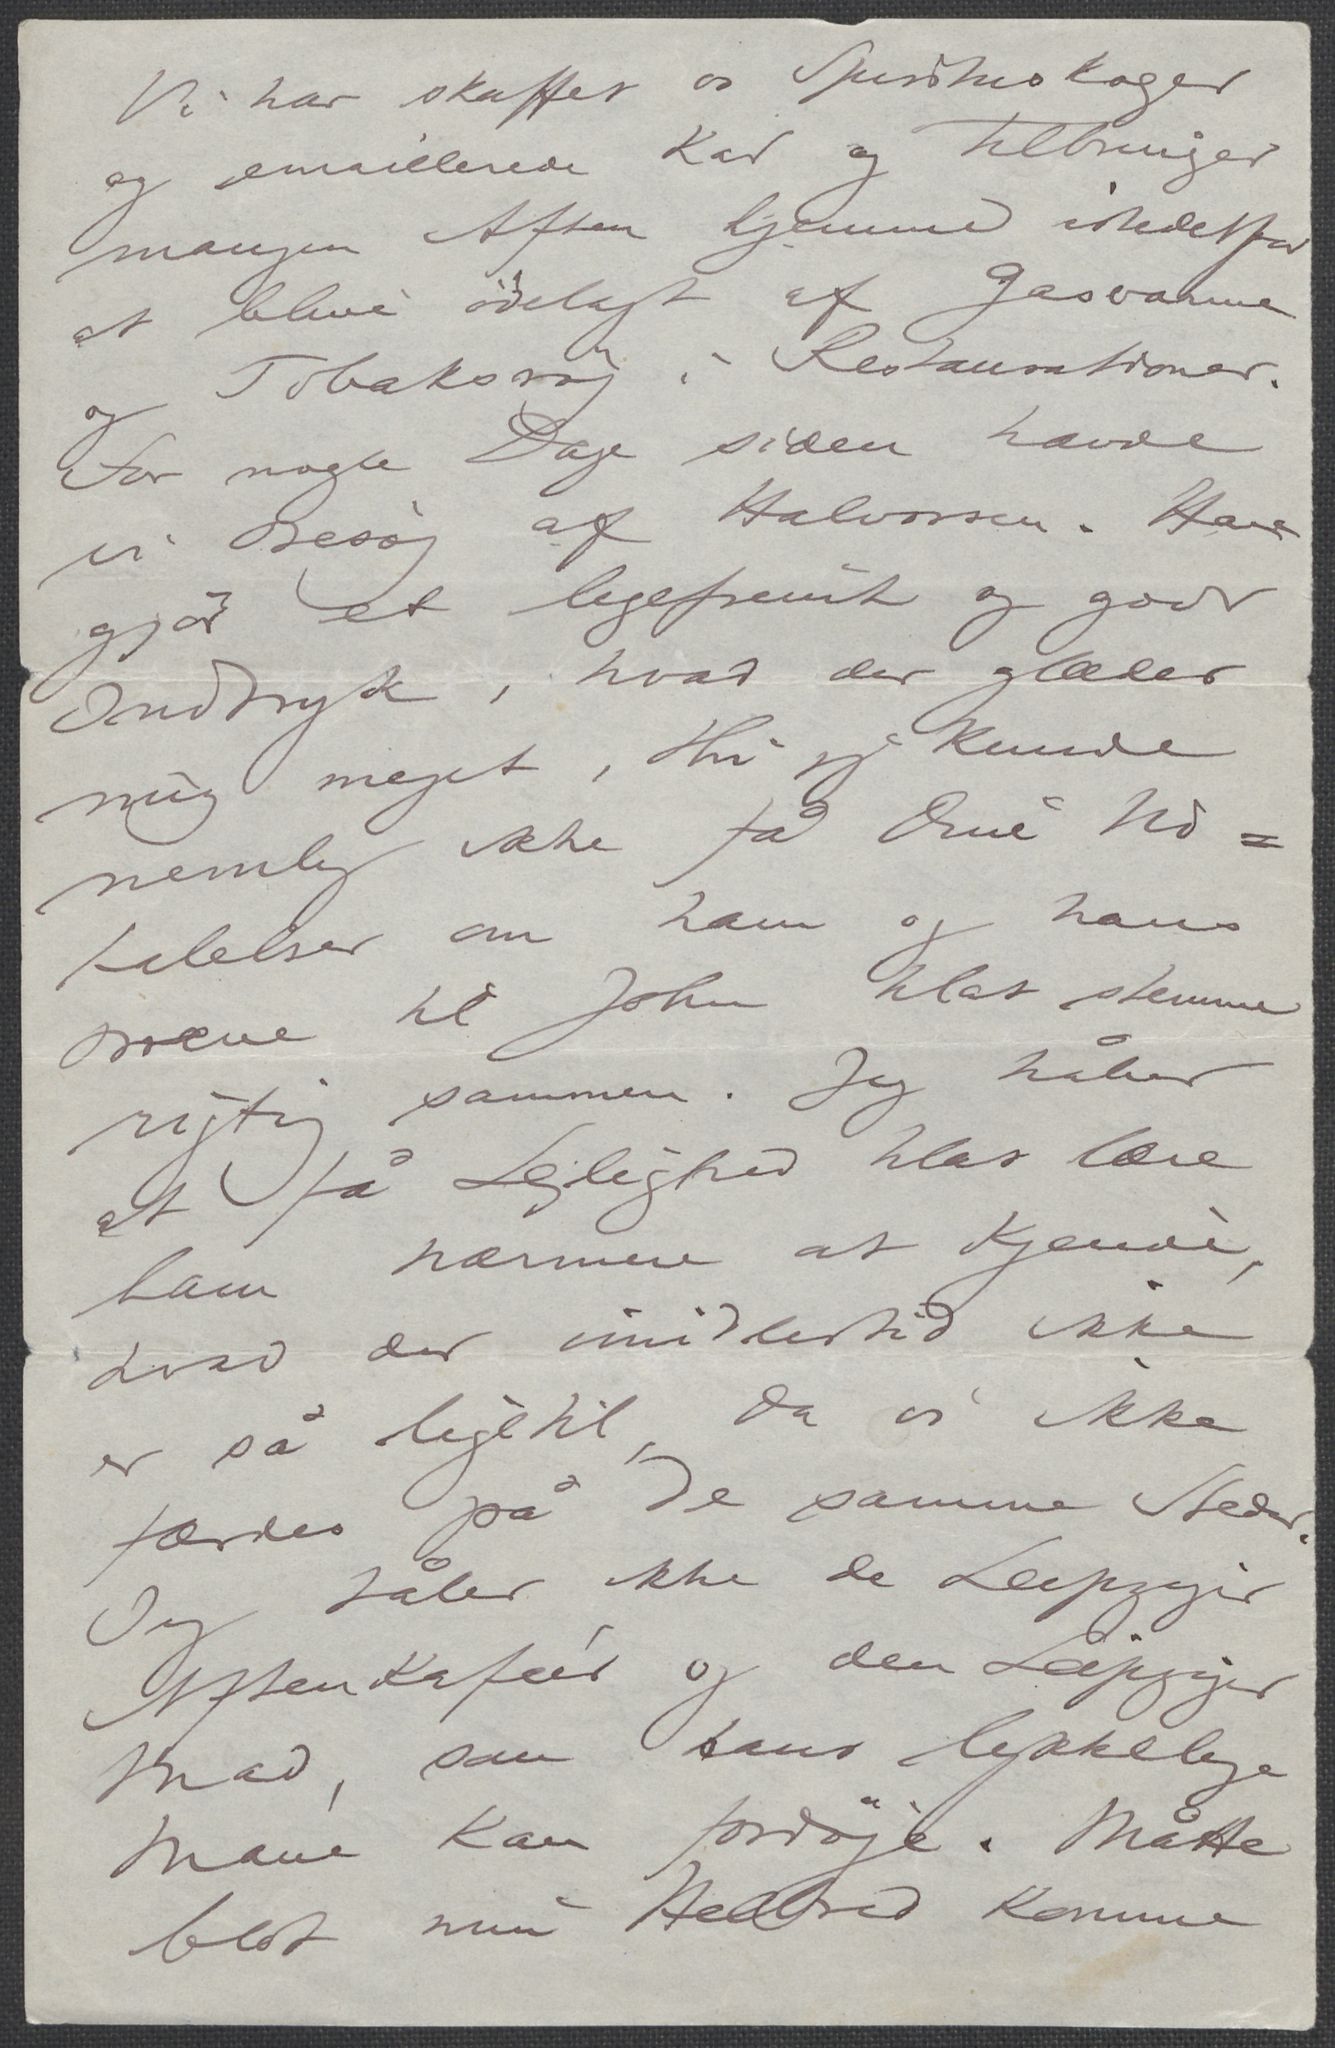 Vi har skaffet os Spirituskoger
og emaillerede Kar og tilbringer
mangen Aften hjemme istedetfor
at blive ödelagt af Gasvarme
og Tobaksrøg i Restaurationer.
For nogle Dage siden havde
vi Besög af Halvorsen. Han
gjör et ligefremt og godt
Indtryk, hvad der glæder
mig meget, thi jeg kunde
nemlig ikke få dine Ud=
talelser om ham og hans
Breve til John til at stemme
rigtig sammen. Jeg håber
at få Lejlighed til at lære
ham nærmere at kjende,
hvad der imidlertid ikke
er så ligetil, da vi ikke
færdes på de samme Steder.
Jeg tåler ikke de Leipziger
Aftenkaféer og den Leipziger
Mad, som hans lykkelige
Mave kan fordöje. Måtte
blot min Helbred komme